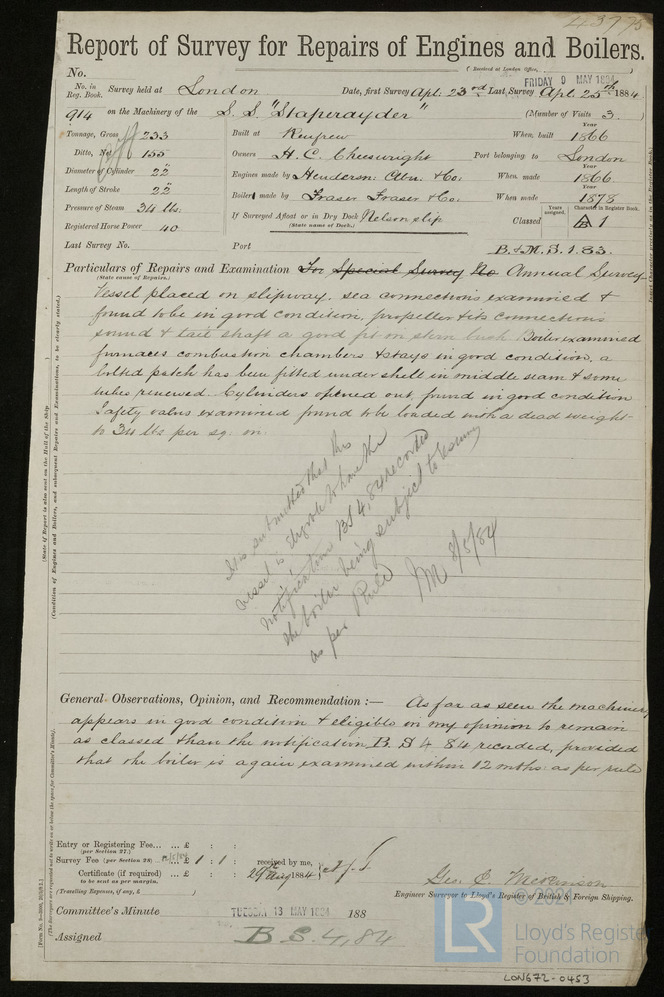 43775
Report of Survey for Repairs of Engines and Boilers.
No. (Received at London Office, FRIDAY 9 MAY 1884)
No. in Reg. Book. Survey held at London Date, first Survey Apl. 23rd Last Survey Apl. 25th 1884
914 on the Machinery of the S.S. "Staperayder" (Number of Visits 3.)
Tonnage, Gross 233 Built at Renfrew When built Year 1866
Ditto, Net 155 Owners H. C. Cheeswright Port belonging to London
Diameter of Cylinder 22" Engines made by Henderson: Cbn. & Co. When made 1866
Length of Stroke 22" Boiler made by Fraser Fraser & Co. When made Year 1878
Pressure of Steam 34 lbs. If Surveyed Afloat or in Dry Dock Nelson slip Classed Years assigned. Character in Register Book. A 1
(State name of Dock.)
Registered Horse Power 40
Last Survey No. Port B.&M.S. 1.83.
Particulars of Repairs and Examination For Special Survey No Annual Survey
(State cause of Repairs.)
Vessel placed on slipway. sea connections examined &
found to be in good condition, propeller & its connections
sound & tail shaft a good fit on stern bush Boiler examined
furnaces combustion chambers & stays in good condition, a
bolted patch has been fitted under shell in middle seam & some
tubes renewed. Cylinders opened out, found in good condition
Safety valves examined found to be loaded with a dead weight
to 34 lbs per sq. in
It is submitted that this
vessel is eligible to have the
notification BS 4,84 recorded
the boiler being subject to survey
as per Rule
JM 8/5/84
General Observations, Opinion, and Recommendation :— As far as seen the machinery
appears in good condition & eligible in my opinion to remain
as classed & have the notification B.S 4 84 recorded, provided
that the boiler is again examined within 12 mths: as per rule
Entry or Registering Fee... ... £ : :
(per Section 27.)
Survey Fee (per Section 28) £ 1 : 1 : received by me,
Certificate (if required) ... £ : : 1884
to be sent as per margin.
(Travelling Expenses, if any, £ )
Geo. C. McKinson
Engineer Surveyor to Lloyd's Register of British & Foreign Shipping.
Committee's Minute TUESDAY 13 MAY 1884 188
Assigned B.S. 4,84
© 2021
LR
Lloyd's Register
Foundation
LON672-0453
(State if Report is also sent on the Hull of the Ship.
(Condition of Engines and Boilers, and subsequent Repairs and Examinations, to be clearly stated.)
(The Surveyors are requested not to write on or below the space for Committee's Minute.)